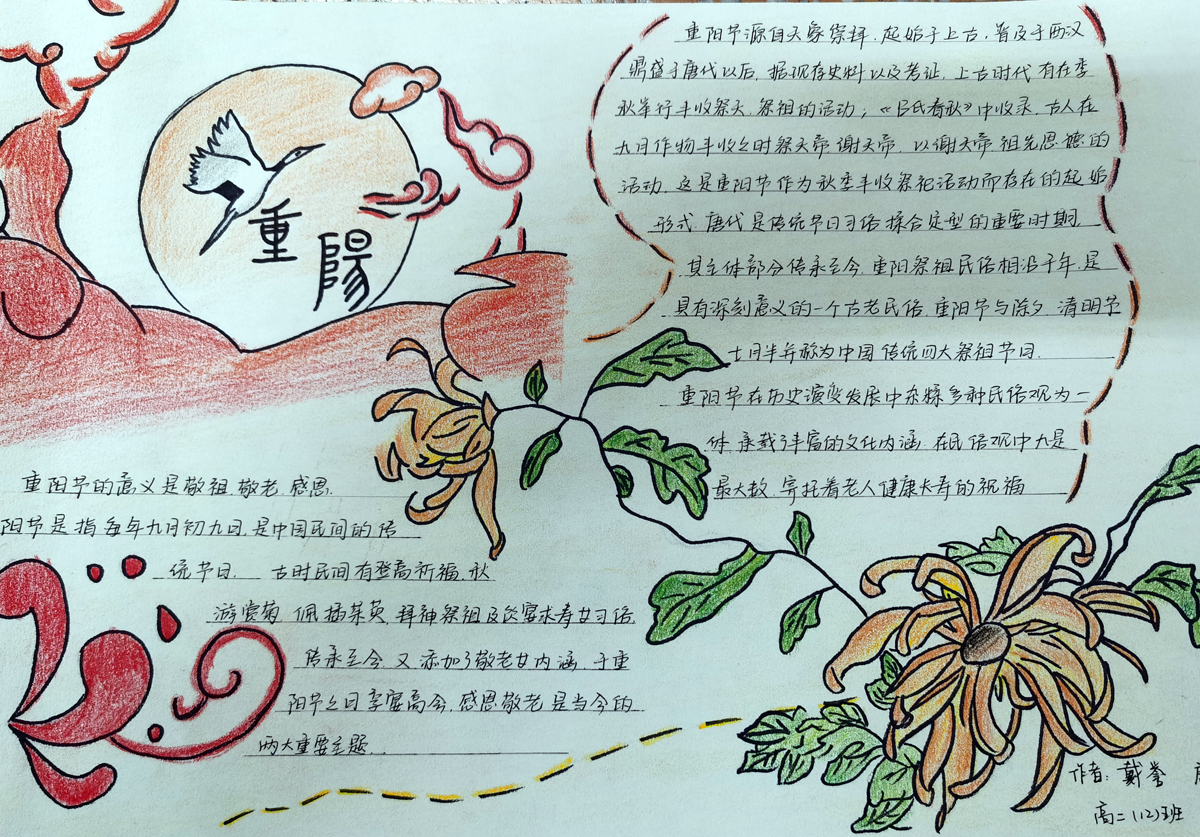 重陽
重阳节源自天象崇拜,起始于上古,普及于西汉
鼎盛于唐代以后,据现存史料以及考证,上古时代有在季
秋举行丰收祭天、祭祖的活动;《吕氏春秋》中收录,古人在
九月作物丰收之时祭天帝,谢天帝,以谢天帝祖先恩德的
活动,这是重阳节作为秋季丰收祭祀活动而存在的起始
形式,唐代是传统节日习俗揉合定型的重要时期
其主体部分传承至今,重阳祭祖民俗相沿千年,是
具有深刻意义的一个古老民俗,重阳节与除夕、清明节
七月半并称为中国传统四大祭祖节日.
重阳节在历史演变发展中杂糅多种民俗观为一
体,承载了丰富的文化内涵,在民俗观中九是
最大数,寄托着老人健康长寿的祝福
重阳节的意义是敬祖,敬老,感恩.
阳节是指每年九月初九日,是中国民间的传
统节日. 古时民间有登高祈福、秋
游赏菊 佩插茱萸,拜神祭祖及饮宴求寿女习俗
传承至今,又添加了敬老女内涵,于重
阳节之日享宴高会,感恩敬老是当今的
两大重要主题
作者:戴
高二(12)班